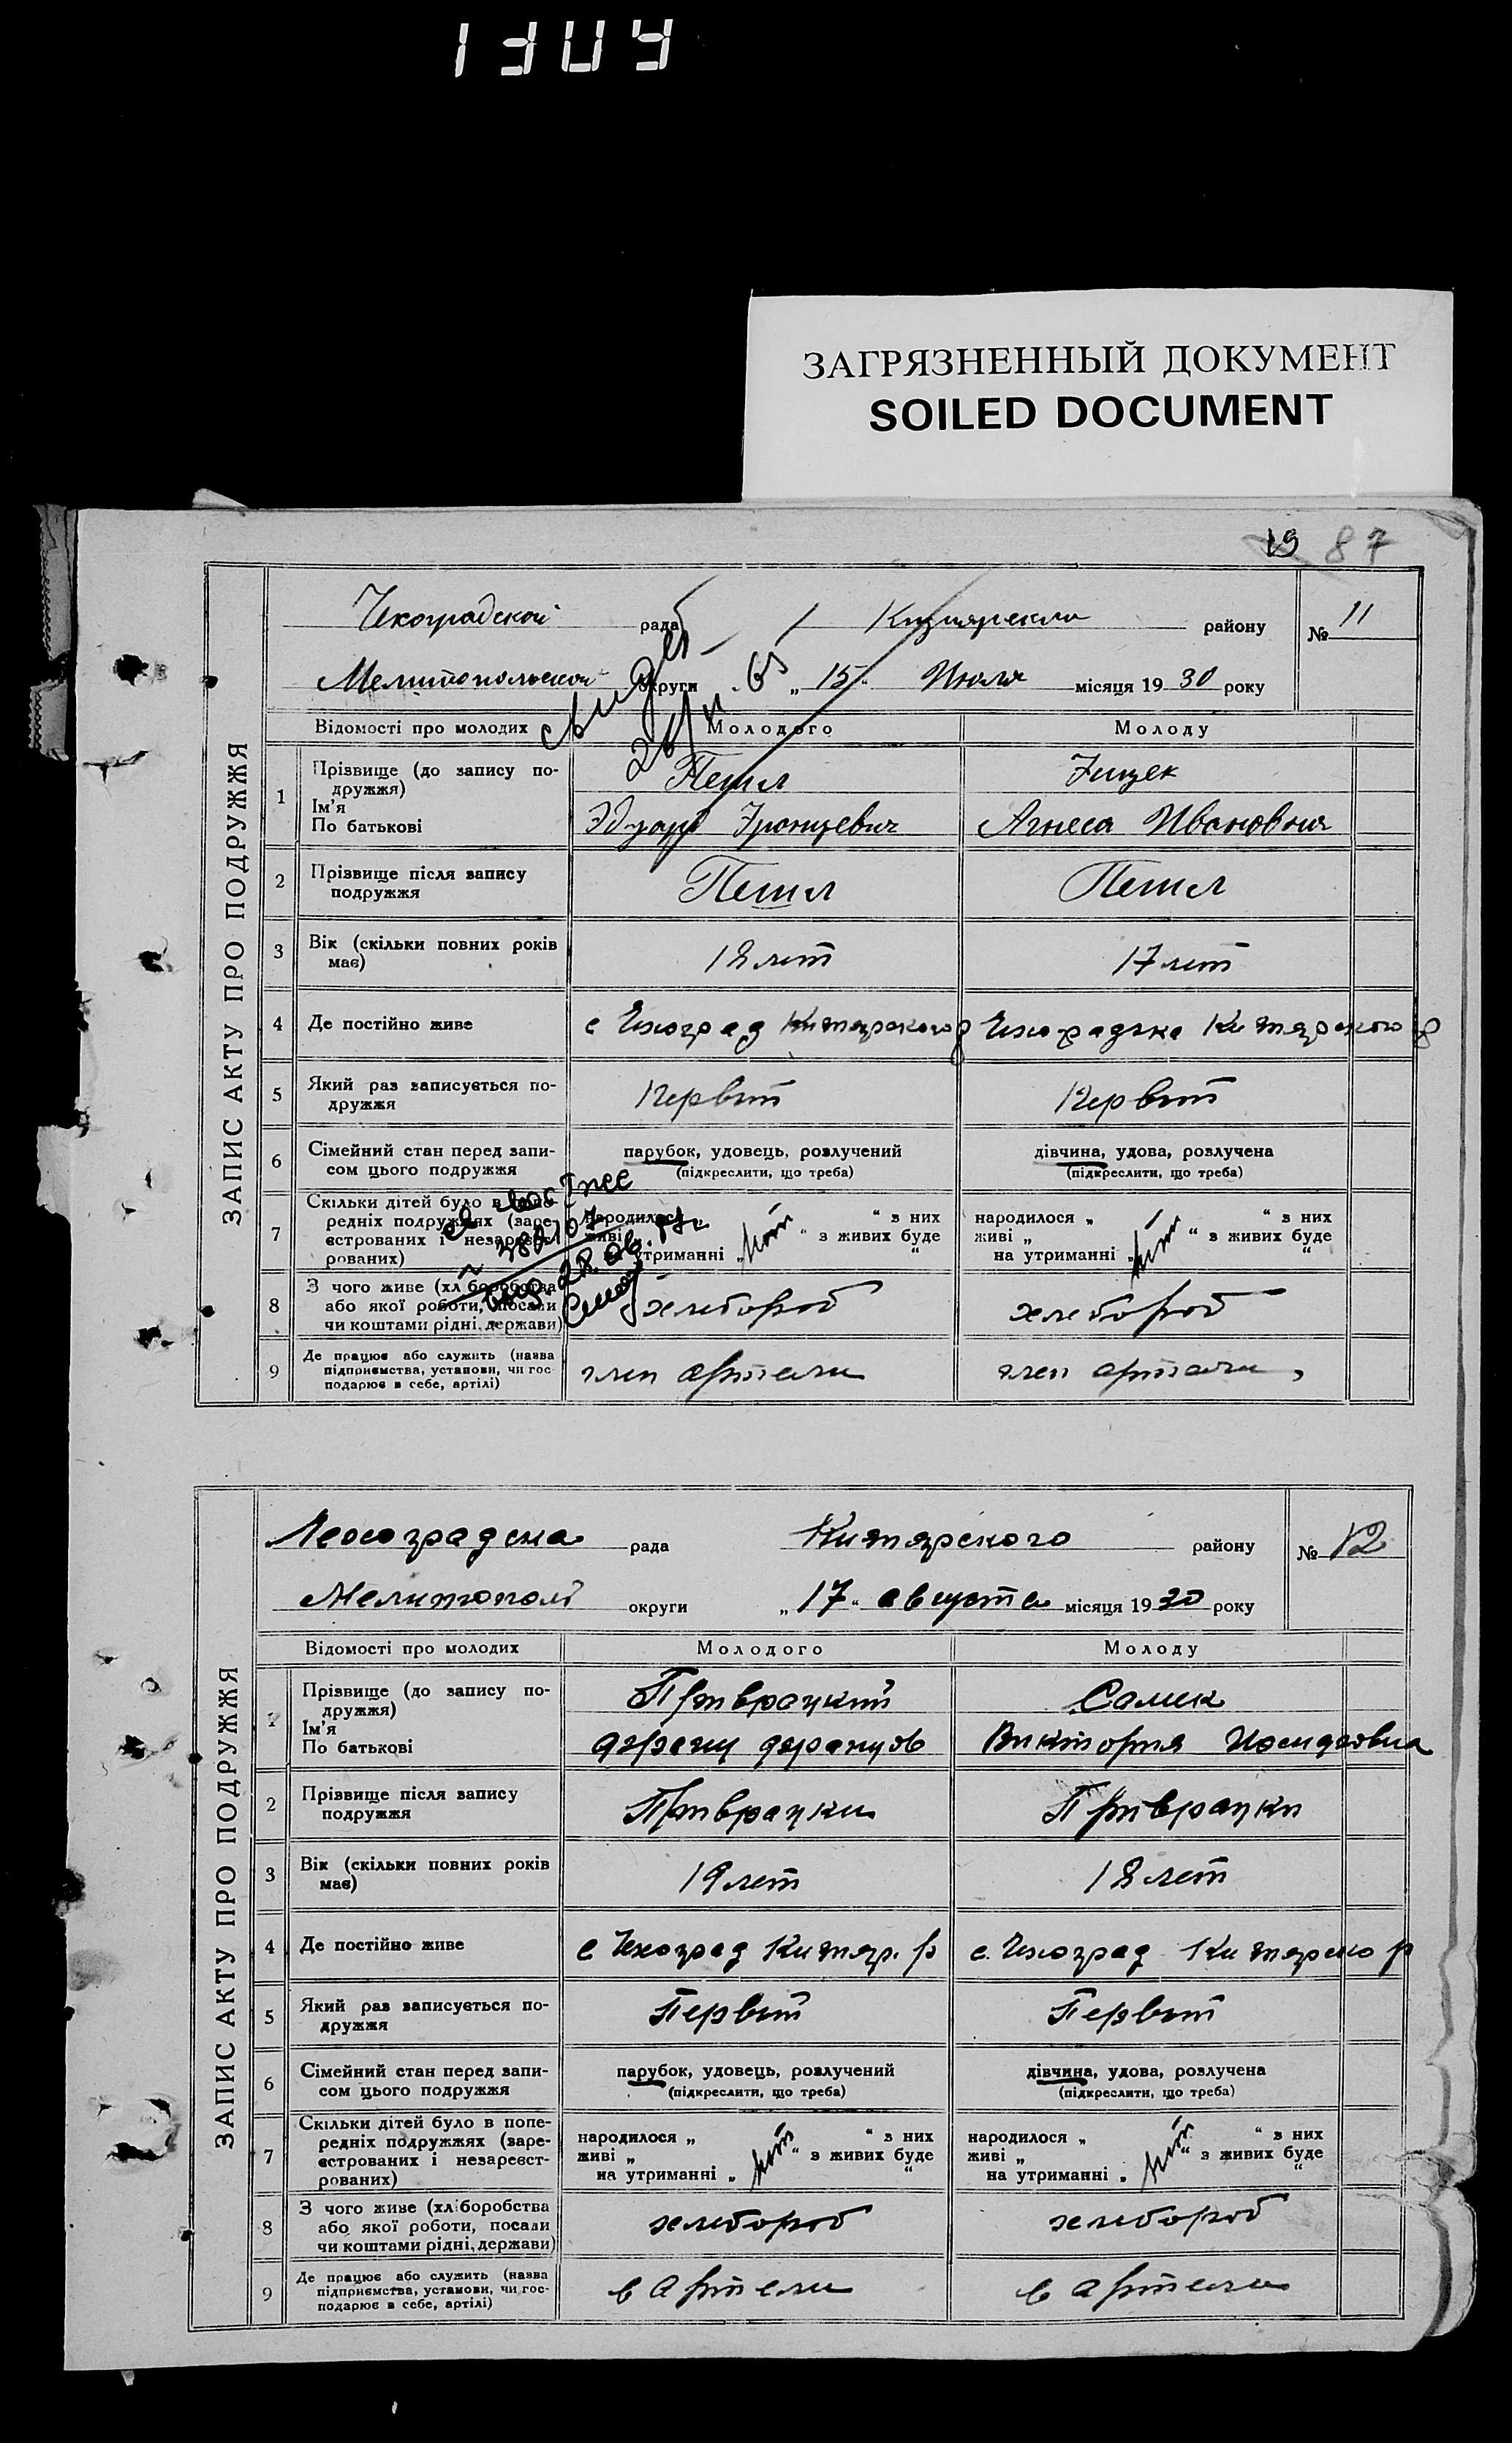 ЗАГРЯЗНЕННЫЙ ДОКУМЕНТ
SOILED DOCUMENT
19 87
ЗАПИС АКТУ ПРО ПОДРУЖЖЯ
Чехоградской рада району № 11
Мелитопольской округи „ 15 “ Июля місяця 1930 року
Відомості про молодих Молодого Молоду
1 Прізвище (до запису по-
дружжя)
Ім’я
По батькові
Пешл
Эдуард Францевич Агнеса Ивановна
2 Прізвище після запису
подружжя
Пешл Пешл
3 Вік (скільки повних років
має)
18 лет 17 лет
4 Де постійно живе
с Чехоград
5 Який раз записується по-
дружжя
Первый Первый
6 Сімейний стан перед запи-
сом цього подружжя
парубок, удовець, розлучений дівчина, удова, розлучена
(підкреслити, що треба) (підкреслити, що треба)
7 Скільки дітей було в попе-
редніх подружжях (заре-
єстрованих і незареєст-
рованих)
народилося „ “ з них народилося „ “ з них
живі „ нет “ з живих буде живі „ нет “ з живих буде
на утриманні „ “ на утриманні „ “
8 З чого живе (хліборобства
або якої роботи, посади
чи коштами рідні, держави)
хлебороб хлебороб
9 Де працює або служить (назва
підприємства, установи, чи гос-
подарює в себе, артілі)
член артели член артели
ЗАПИС АКТУ ПРО ПОДРУЖЖЯ
рада Кизиярского району № 12
Мелитопол округи „ 17 “ августа місяця 1930 року
Відомості про молодих Молодого Молоду
1 Прізвище (до запису по-
дружжя)
Ім’я
По батькові
Самек
Виктория
2 Прізвище після запису
подружжя
3 Вік (скільки повних років
має)
19 лет 18 лет
4 Де постійно живе
с Чехоград Кизияр. р с. Чехоград
5 Який раз записується по-
дружжя
Первый Первый
6 Сімейний стан перед запи-
сом цього подружжя
парубок, удовець, розлучений дівчина, удова, розлучена
(підкреслити, що треба) (підкреслити, що треба)
7 Скільки дітей було в попе-
редніх подружжях (заре-
єстрованих і незареєст-
рованих)
народилося „ “ з них народилося „ “ з них
живі „ нет “ з живих буде живі „ нет “ з живих буде
на утриманні „ “ на утриманні „ “
8 З чого живе (хліборобства
або якої роботи, посади
чи коштами рідні, держави)
хлебороб хлебороб
9 Де працює або служить (назва
підприємства, установи, чи гос-
подарює в себе, артілі)
в артели в артели